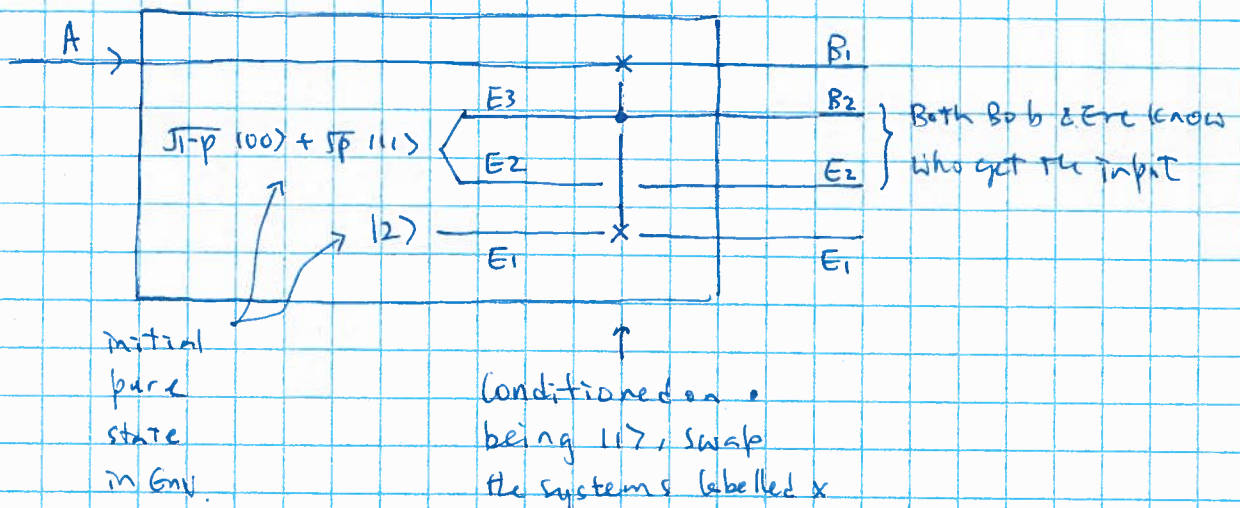 A
B₁
E3
B2
√1-p |00⟩ + √p |11⟩
Both Bob & Eve know
E2
E2
who get the input
|2⟩
E₁
E₁
initial
pure
state
in Env.
Conditioned on •
being |1⟩, swap
the systems labelled x